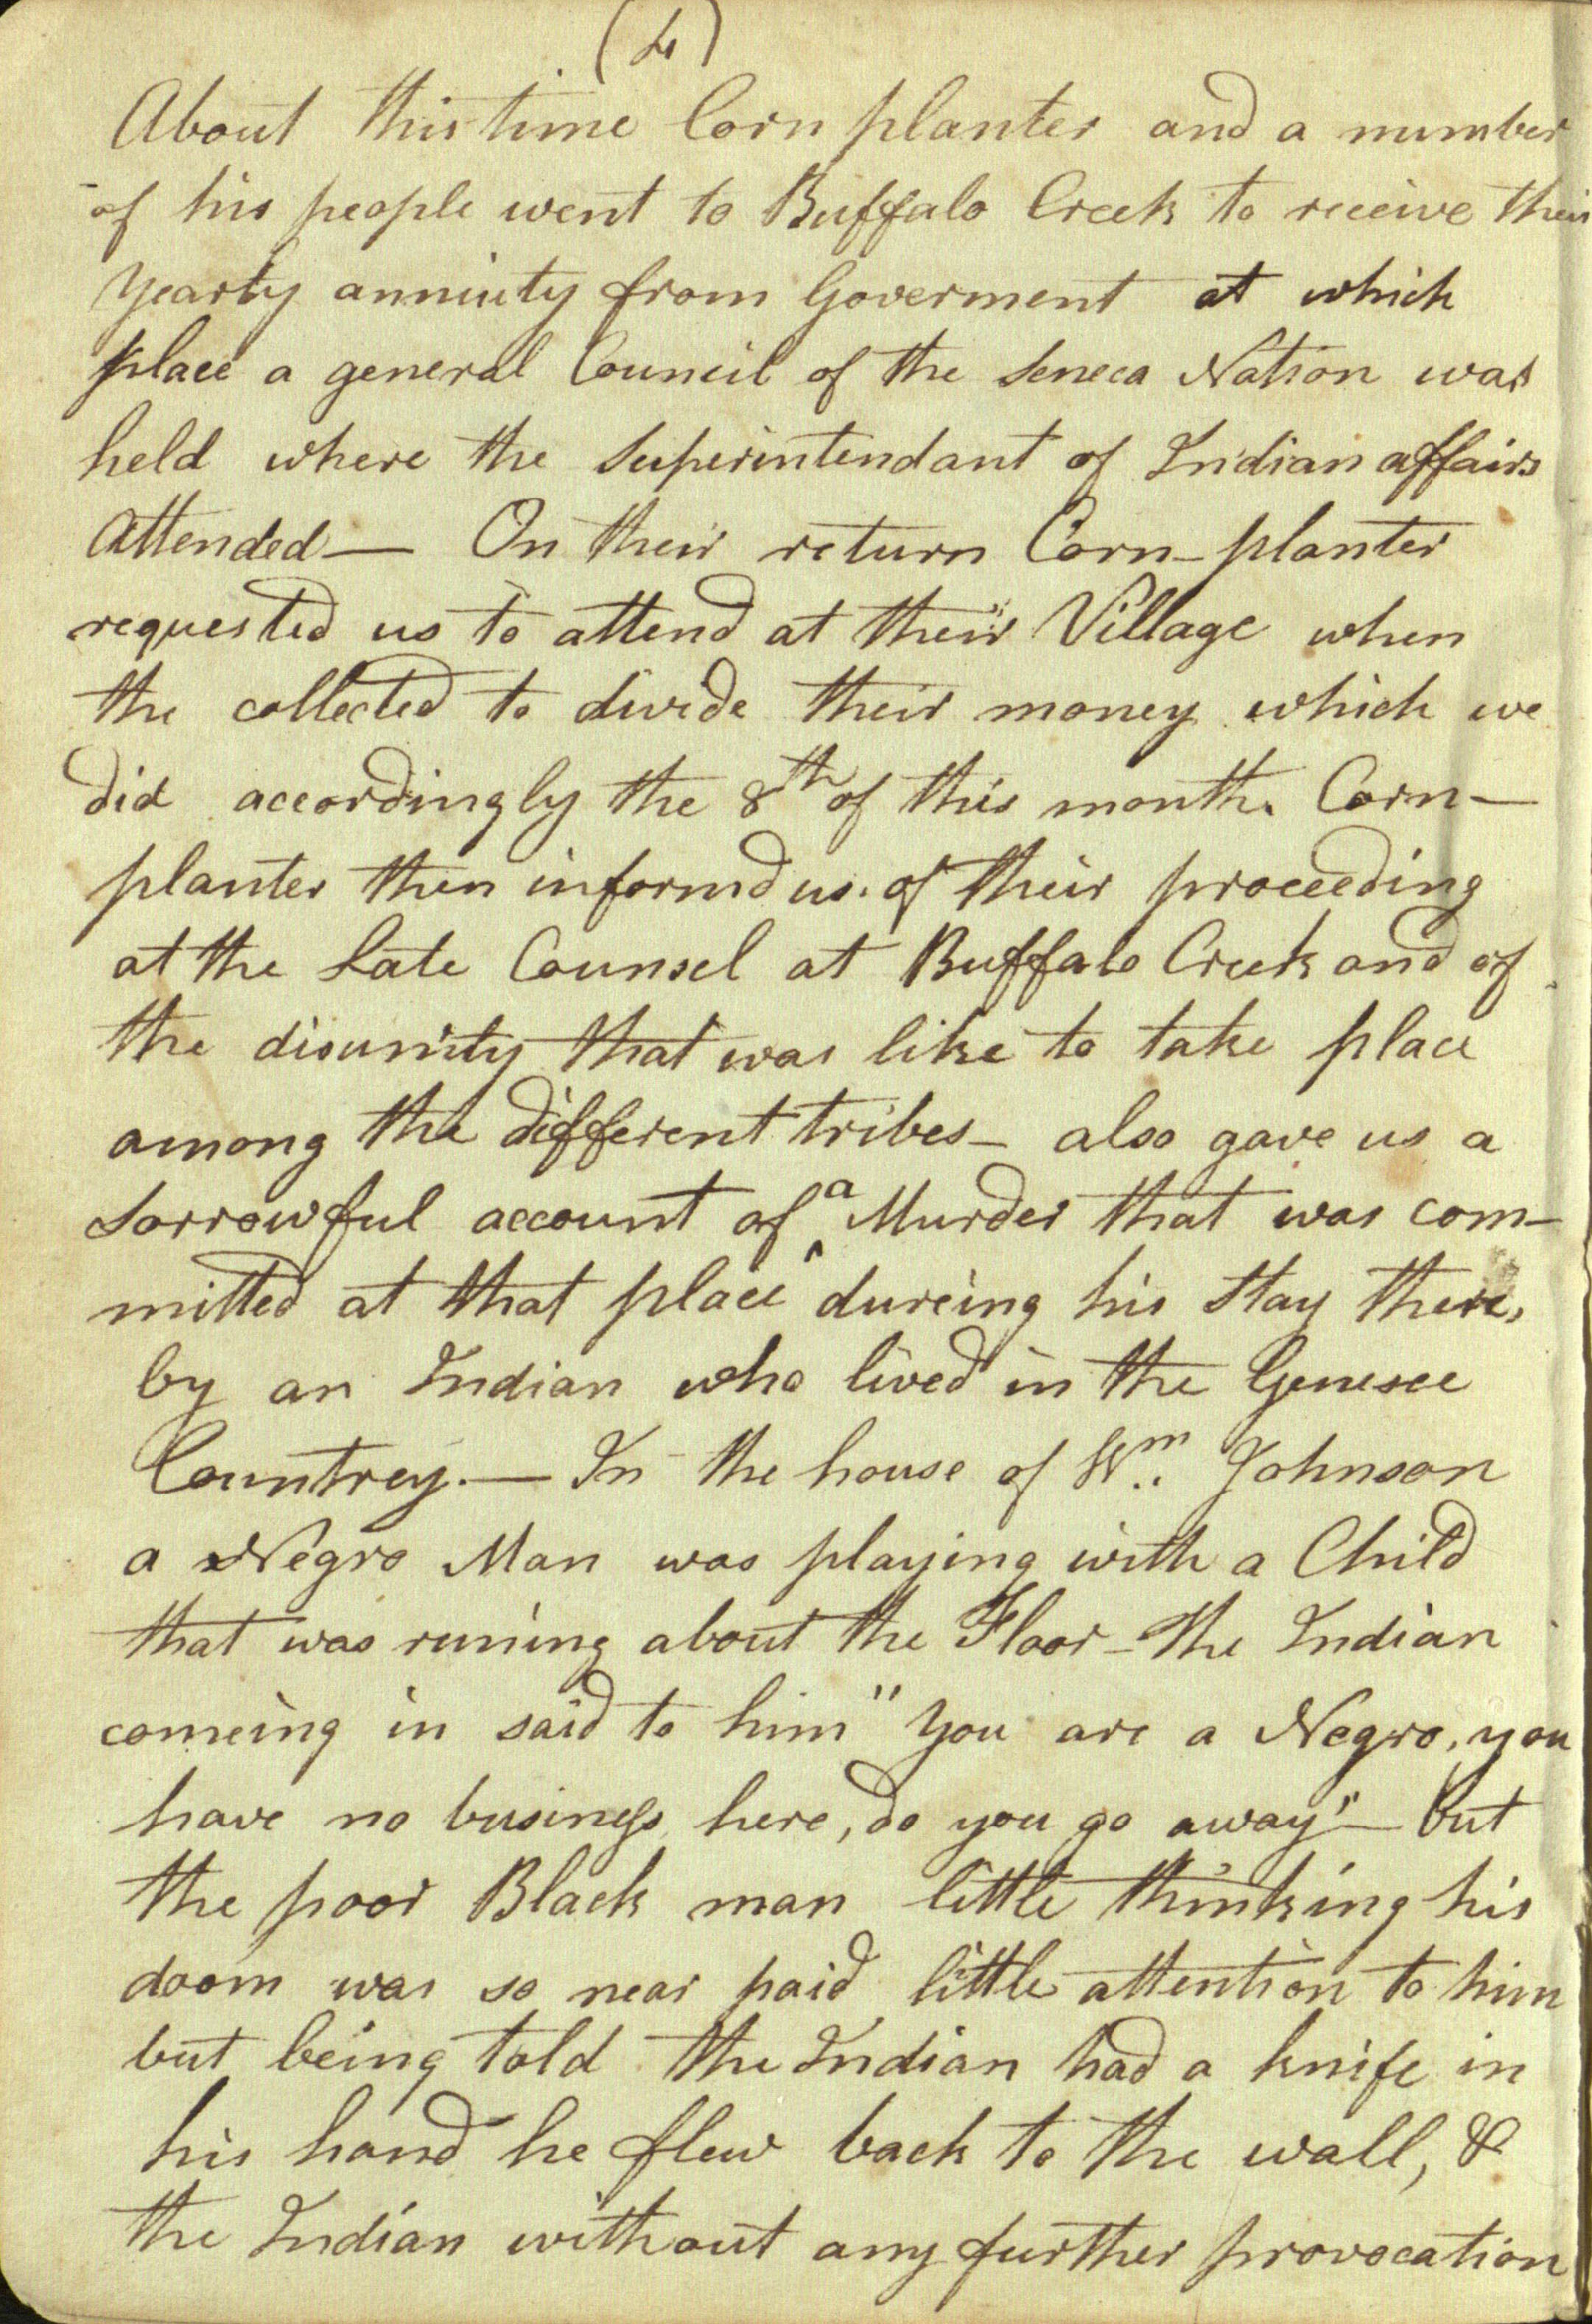 (4)
About this time Corn planter and a number
of his people went to Buffalo Creek to receive their
Yearly anniuty from Goverment at which
place a general Council of the Seneca Nation was
held where the Superintendant of Indian affairs
Attended — On their return Corn-planter
requested us to attend at their Village when
the collected to divide their money which we
did accordingly the 8th of this month. Corn-
planter then informd us. of their proceeding
at the Late Counsel at Buffalo Creek and of
the disunity that was like to take place
among the different tribes - also gave us a
Sorrowful account of a Murder that was com-
mitted at that place dureing his Stay there,
by an Indian who lived in the Genesee
Countrey. — In the house of Wm. Johnson
a Negro Man was playing with a Child
that was runing about the Floor - the Indian
comeing in said to him "You are a Negro, you
have no business here, do you go away" — but
the poor Black man little thinking his
doom was so near paid little attention to him
but being told the Indian had a knife in
his hand he flew back to the wall, &
the Indian without any further provocation